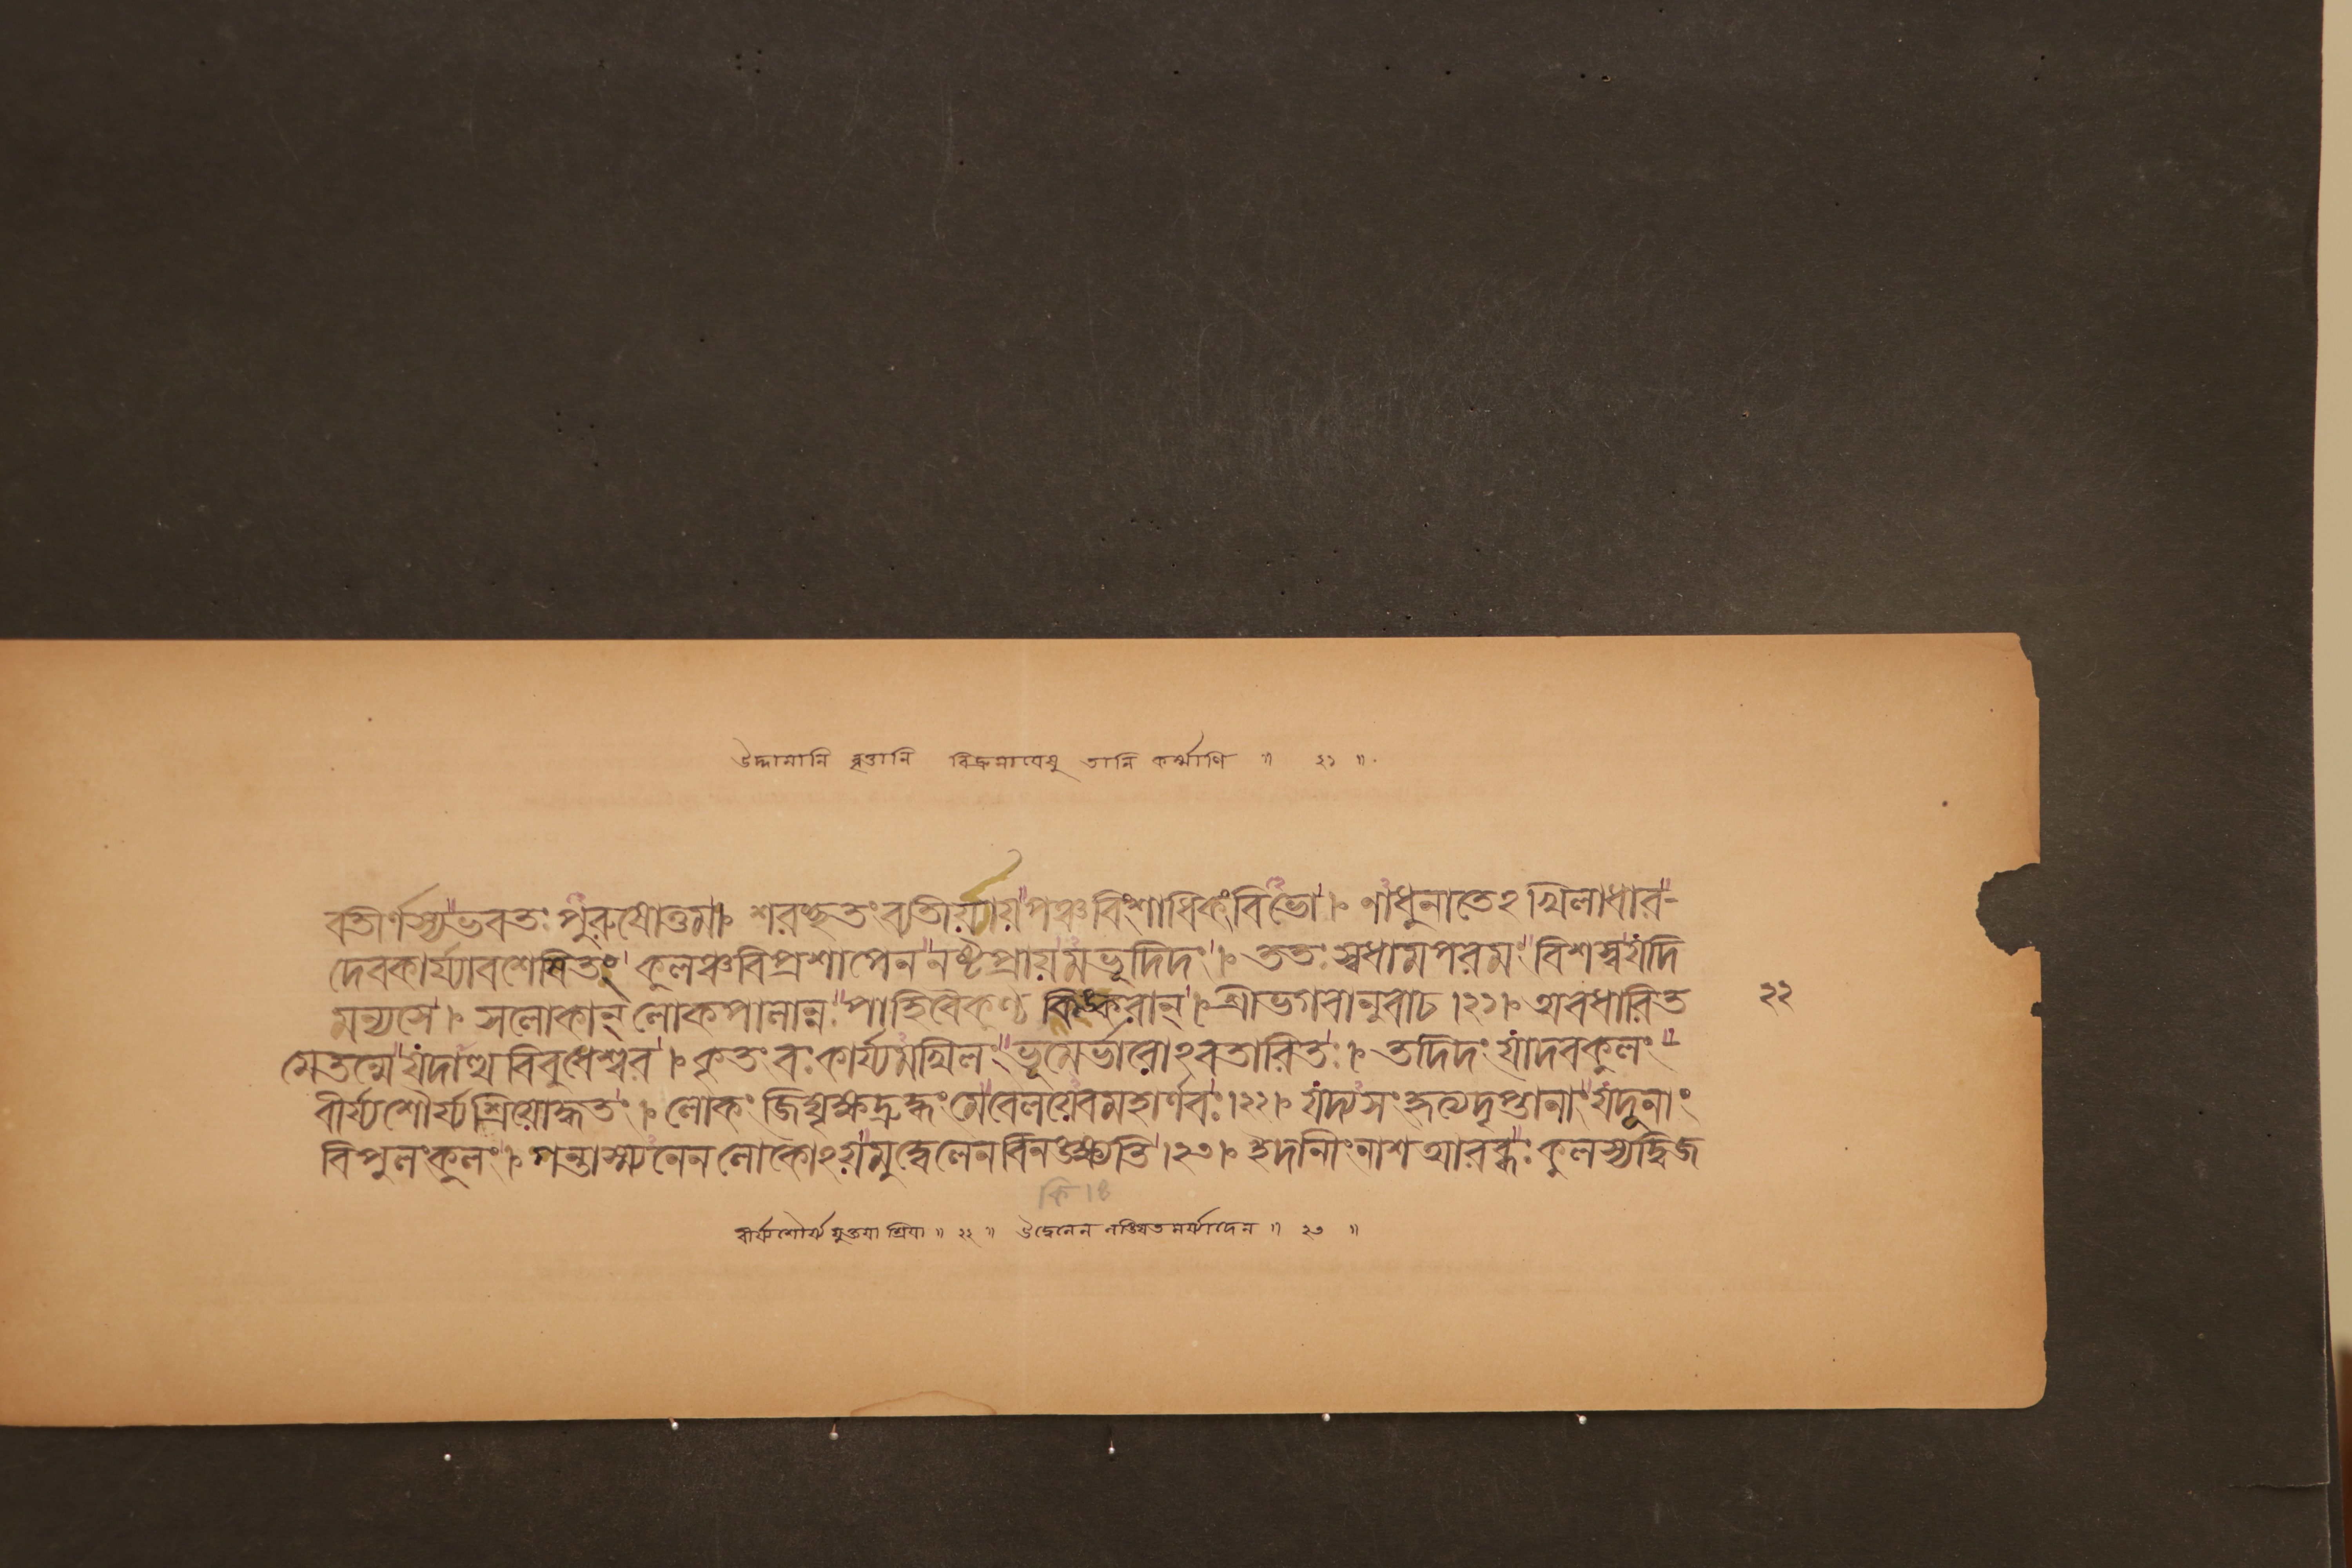 উদ্দামানি বৃত্তানি বিক্রমা যেষু তানি কর্ম্মাণি ॥ ২১ ॥
বতীর্ণস্য ভবতঃ পুরুষোত্তম। শরচ্ছতং ব্যতীয়ায় পঞ্চবিংশাধিকং বিভো। নাধুনা তেঽখিলাধার-
দেবকার্য্যাবশেষিতং কুলঞ্চ বিপ্রশাপেন নষ্টপ্রায়মভূদিদং। ততঃ স্বধাম পরমং বিশস্ব যদি
মন্যসে। সলোকান্ লোকপালান্নঃ পাহি বৈকুণ্ঠ কিঙ্করান্। শ্রীভগবানুবাচ।২১। অবধারিত
২২
মেতন্মে যদাত্থ বিবুধেশ্বর। কৃতং বঃ কার্য্যমখিলং ভূমের্ভারোঽবতারিতঃ। তদিদং যাদবকুলং
বীর্য্যশৌর্য্যশ্রিয়োদ্ধতং। লোকং জিঘৃক্ষদ্রুদ্ধং মে বেলয়েব মহার্ণবঃ।২২। যদ্যসংহৃত্য দৃপ্তানাং যদূনাং
বিপুলং কুলং। গন্তাস্ম্যনেন লোকোঽয়মুদ্বেলেন বিনঙ্ক্ষ্যতি।২৩। ইদানীং নাশ আরব্ধঃ কুলস্য দ্বিজ
বীর্য্যশৌর্য্যযুক্তয়া শ্রিয়া ॥ ২২ ॥ উদ্বেলেন লঙ্ঘিতমর্য্যাদেন ॥ ২৩ ॥